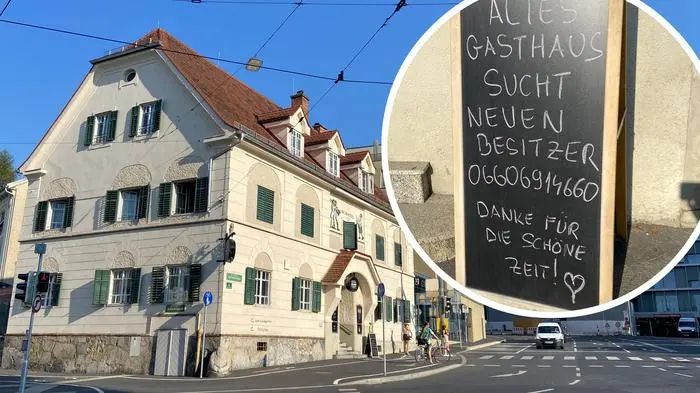 ALTES
GASTHAUS
SUCHT
NEUEN
BESITZER
06606914660
DANKE FÜR
DIE SCHÖNE
ZEIT!